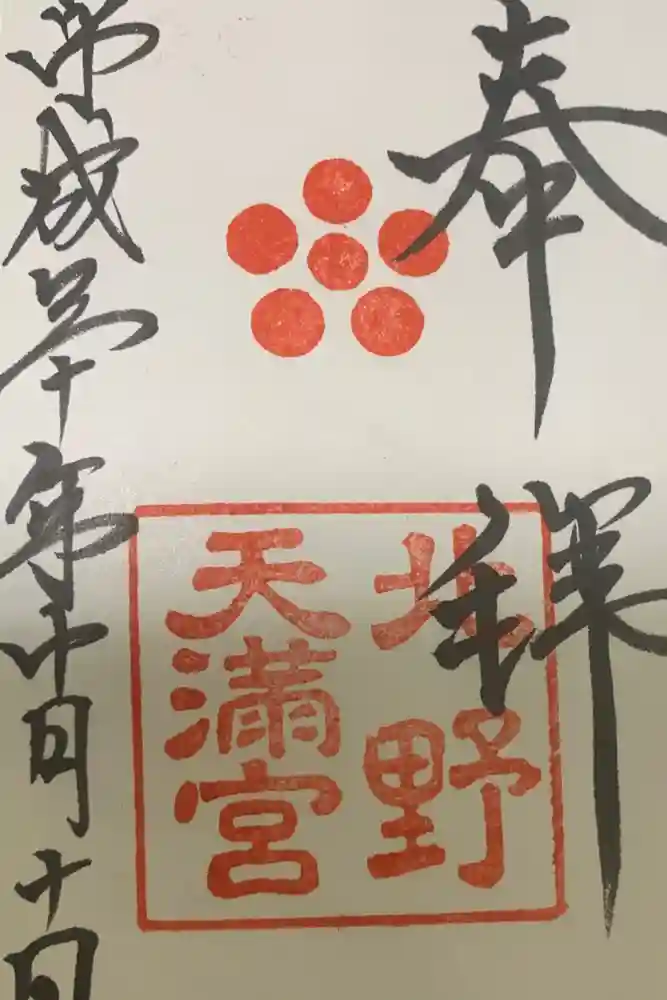 奉拝
北野
天満宮
平成三十年 月十日